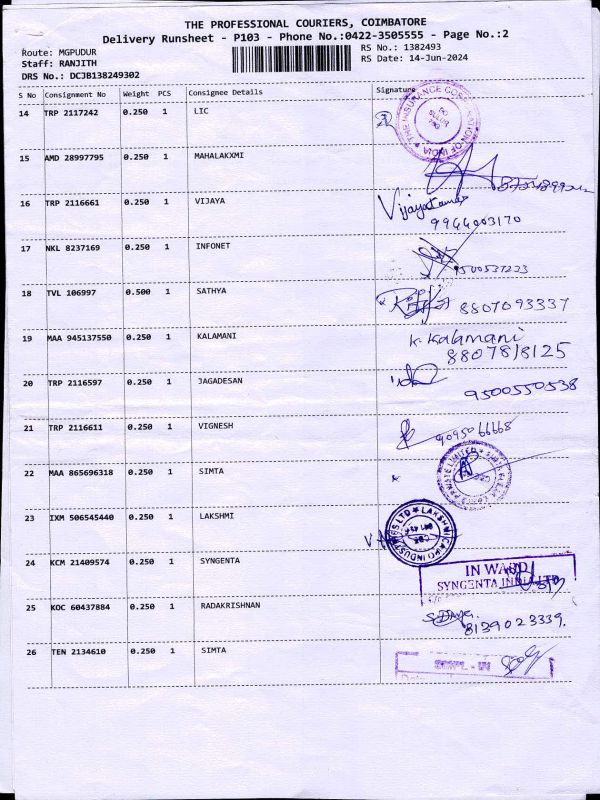 THE PROFESSIONAL COURIERS, COIMBATORE
Delivery Runsheet - P103 - Phone No.:0422-3505555 - Page No.:2
Route: MGPUDUR
RS No.: 1382493
Staff: RANJITH
RS Date: 14-Jun-2024
DRS No.: DCJB138249302
S No Consignment No Weight PCS Consignee Details Signature
14 TRP 2117242 0.250 1 LIC
15 AMD 28997795 0.250 1 MAHALAKXMI
16 TRP 2116661 0.250 1 VIJAYA Vijayakumar
9944003170
17 NKL 8237169 0.250 1 INFONET 9500537233
18 TVL 106997 0.500 1 SATHYA 8807093337
19 MAA 945137550 0.250 1 KALAMANI K. Kalamani
8807818125
20 TRP 2116597 0.250 1 JAGADESAN
9500550538
21 TRP 2116611 0.250 1 VIGNESH 9095066668
22 MAA 865696318 0.250 1 SIMTA
23 IXM 506545440 0.250 1 LAKSHMI
24 KCM 21409574 0.250 1 SYNGENTA IN WARD
SYNGENTA INDIA LTD
25 KOC 60437884 0.250 1 RADAKRISHNAN
8139023339.
26 TEN 2134610 0.250 1 SIMTA